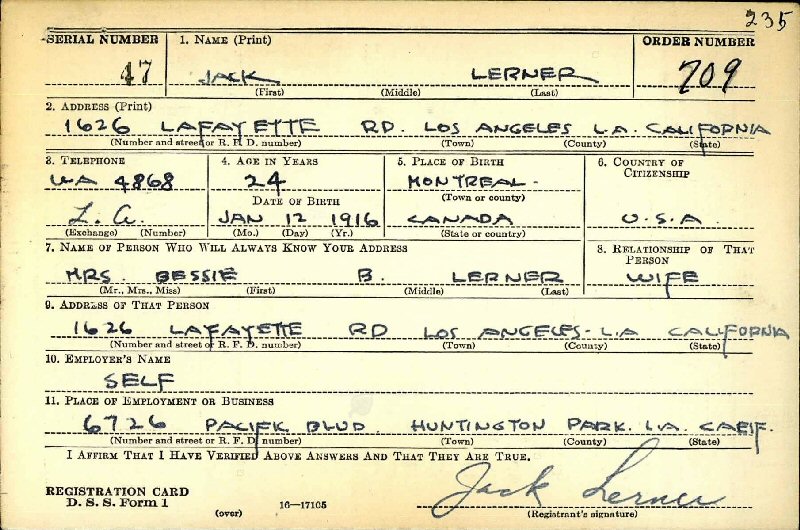 235
SERIAL NUMBER 1. NAME (Print) ORDER NUMBER
47 JACK LERNER 709
(First) (Middle) (Last)
2. ADDRESS (Print)
1626 LAFAYETTE RD. LOS ANGELES L.A. CALIFORNIA
(Number and street or R. F. D. number) (Town) (County) (State)
3. TELEPHONE 4. AGE IN YEARS 5. PLACE OF BIRTH 6. COUNTRY OF CITIZENSHIP
WA 4868 24 MONTREAL-
DATE OF BIRTH (Town or county)
L.A. JAN 12 1916 CANADA U.S.A.
(Exchange) (Number) (Mo.) (Day) (Yr.) (State or country)
7. NAME OF PERSON WHO WILL ALWAYS KNOW YOUR ADDRESS 8. RELATIONSHIP OF THAT PERSON
MRS. BESSIE B. LERNER WIFE
(Mr., Mrs., Miss) (First) (Middle) (Last)
9. ADDRESS OF THAT PERSON
1626 LAFAYETTE RD LOS ANGELES-L.A CALIFORNIA
(Number and street or R. F. D. number) (Town) (County) (State)
10. EMPLOYER'S NAME
SELF
11. PLACE OF EMPLOYMENT OR BUSINESS
6726 PACIFIC BLVD HUNTINGTON PARK. L.A. CALIF.
(Number and street or R. F. D. number) (Town) (County) (State)
I AFFIRM THAT I HAVE VERIFIED ABOVE ANSWERS AND THAT THEY ARE TRUE.
REGISTRATION CARD
D. S. S. Form 1 16—17105 Jack Lerner
(over) (Registrant's signature)